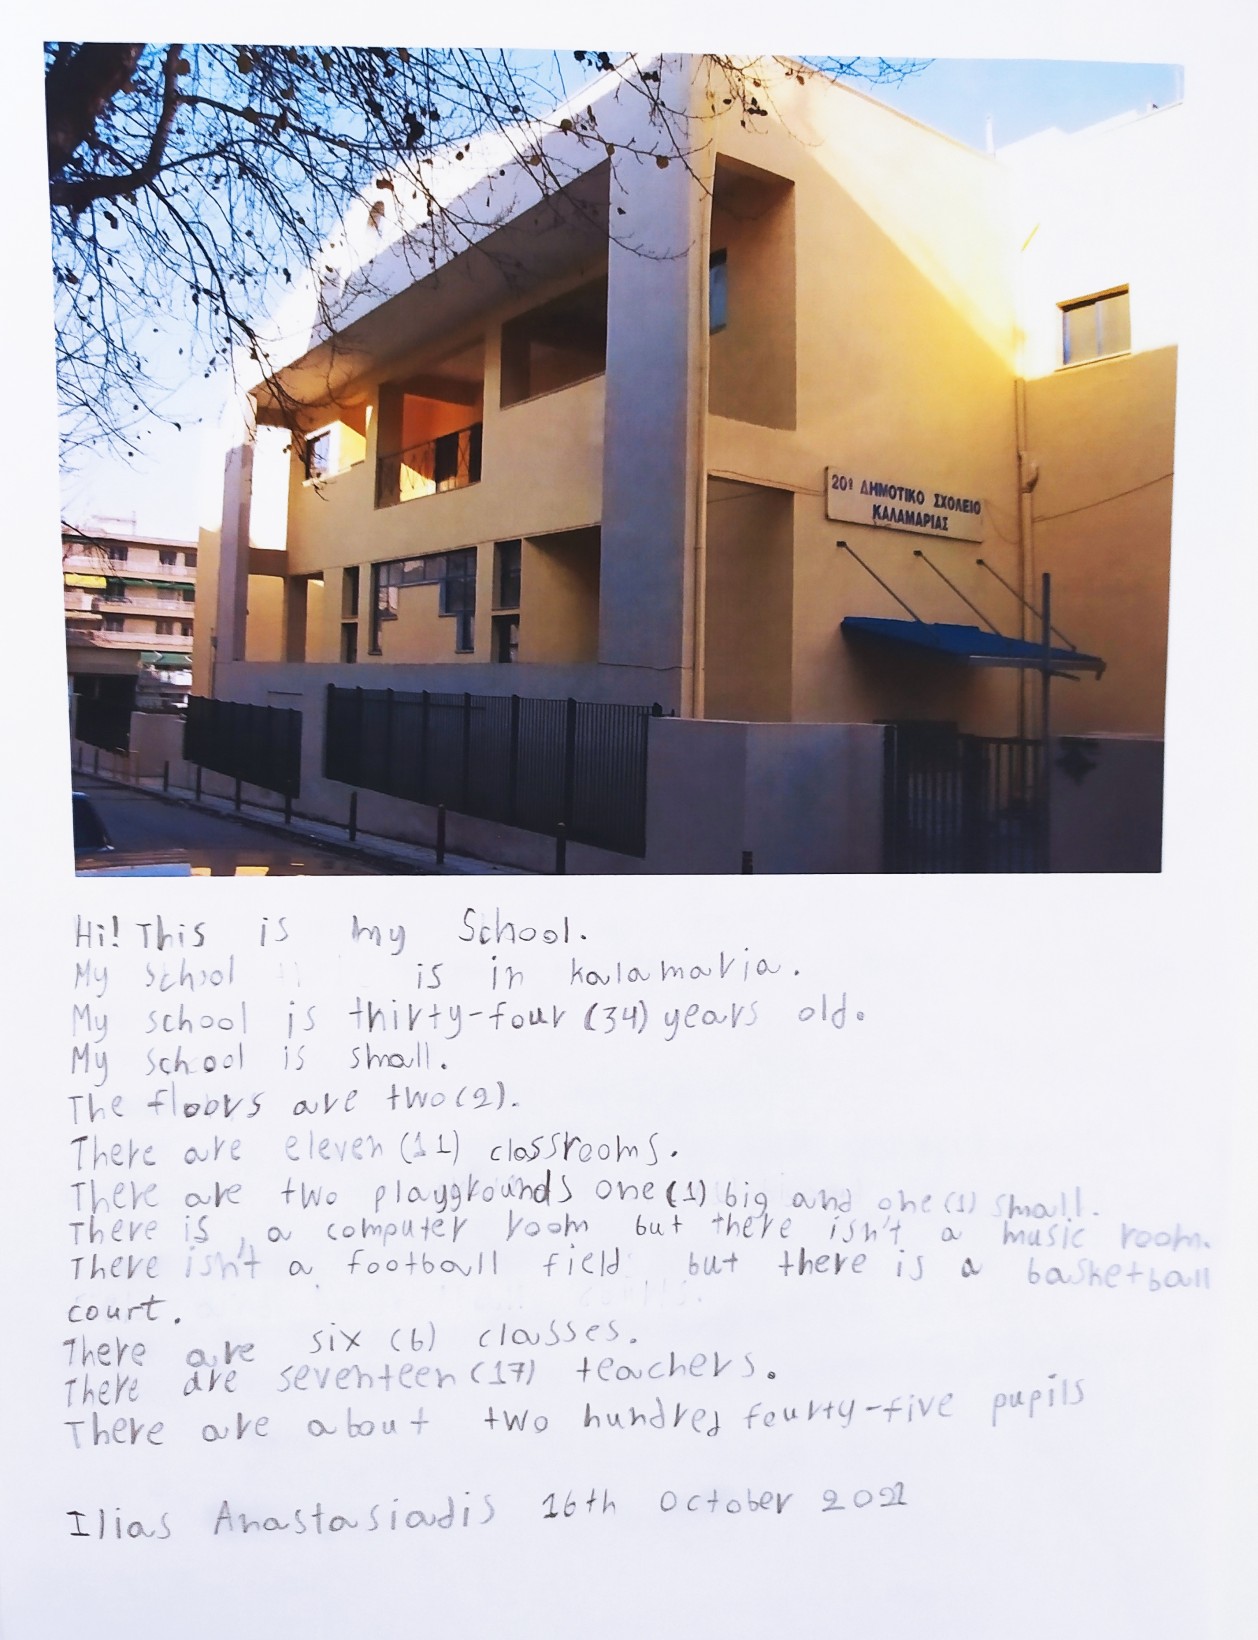 20º ΔΗΜΟΤΙΚΟ ΣΧΟΛΕΙΟ
ΚΑΛΑΜΑΡΙΑΣ
Hi! This is my School.
My school is in kalamaria.
My school is thirty-four (34) years old.
My school is small.
The floors are two (2).
There are eleven (11) classrooms.
There are two playgrounds one (1) big and one (1) small.
There is, a computer room but there isn't a music room.
There isn't a football field but there is a basketball
court.
There are six (6) classes.
There are seventeen (17) teachers.
There are about two hundred fourty-five pupils
Ilias Anastasiadis 16th October 2021